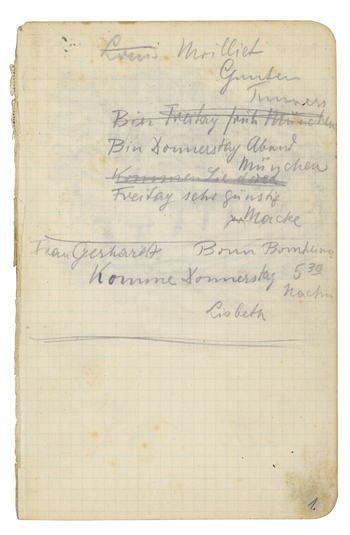 Louis Moilliet
Gunten
Thunersee
Bin Freitag früh München
Bin Donnerstag Abend
München
Kommen Sie doch
Freitag sehr günstig
Macke
Frau Gerhardt Bonn Bornheimer
Komme Donnerstag 5 30
Nachm
Lisbeth
1.